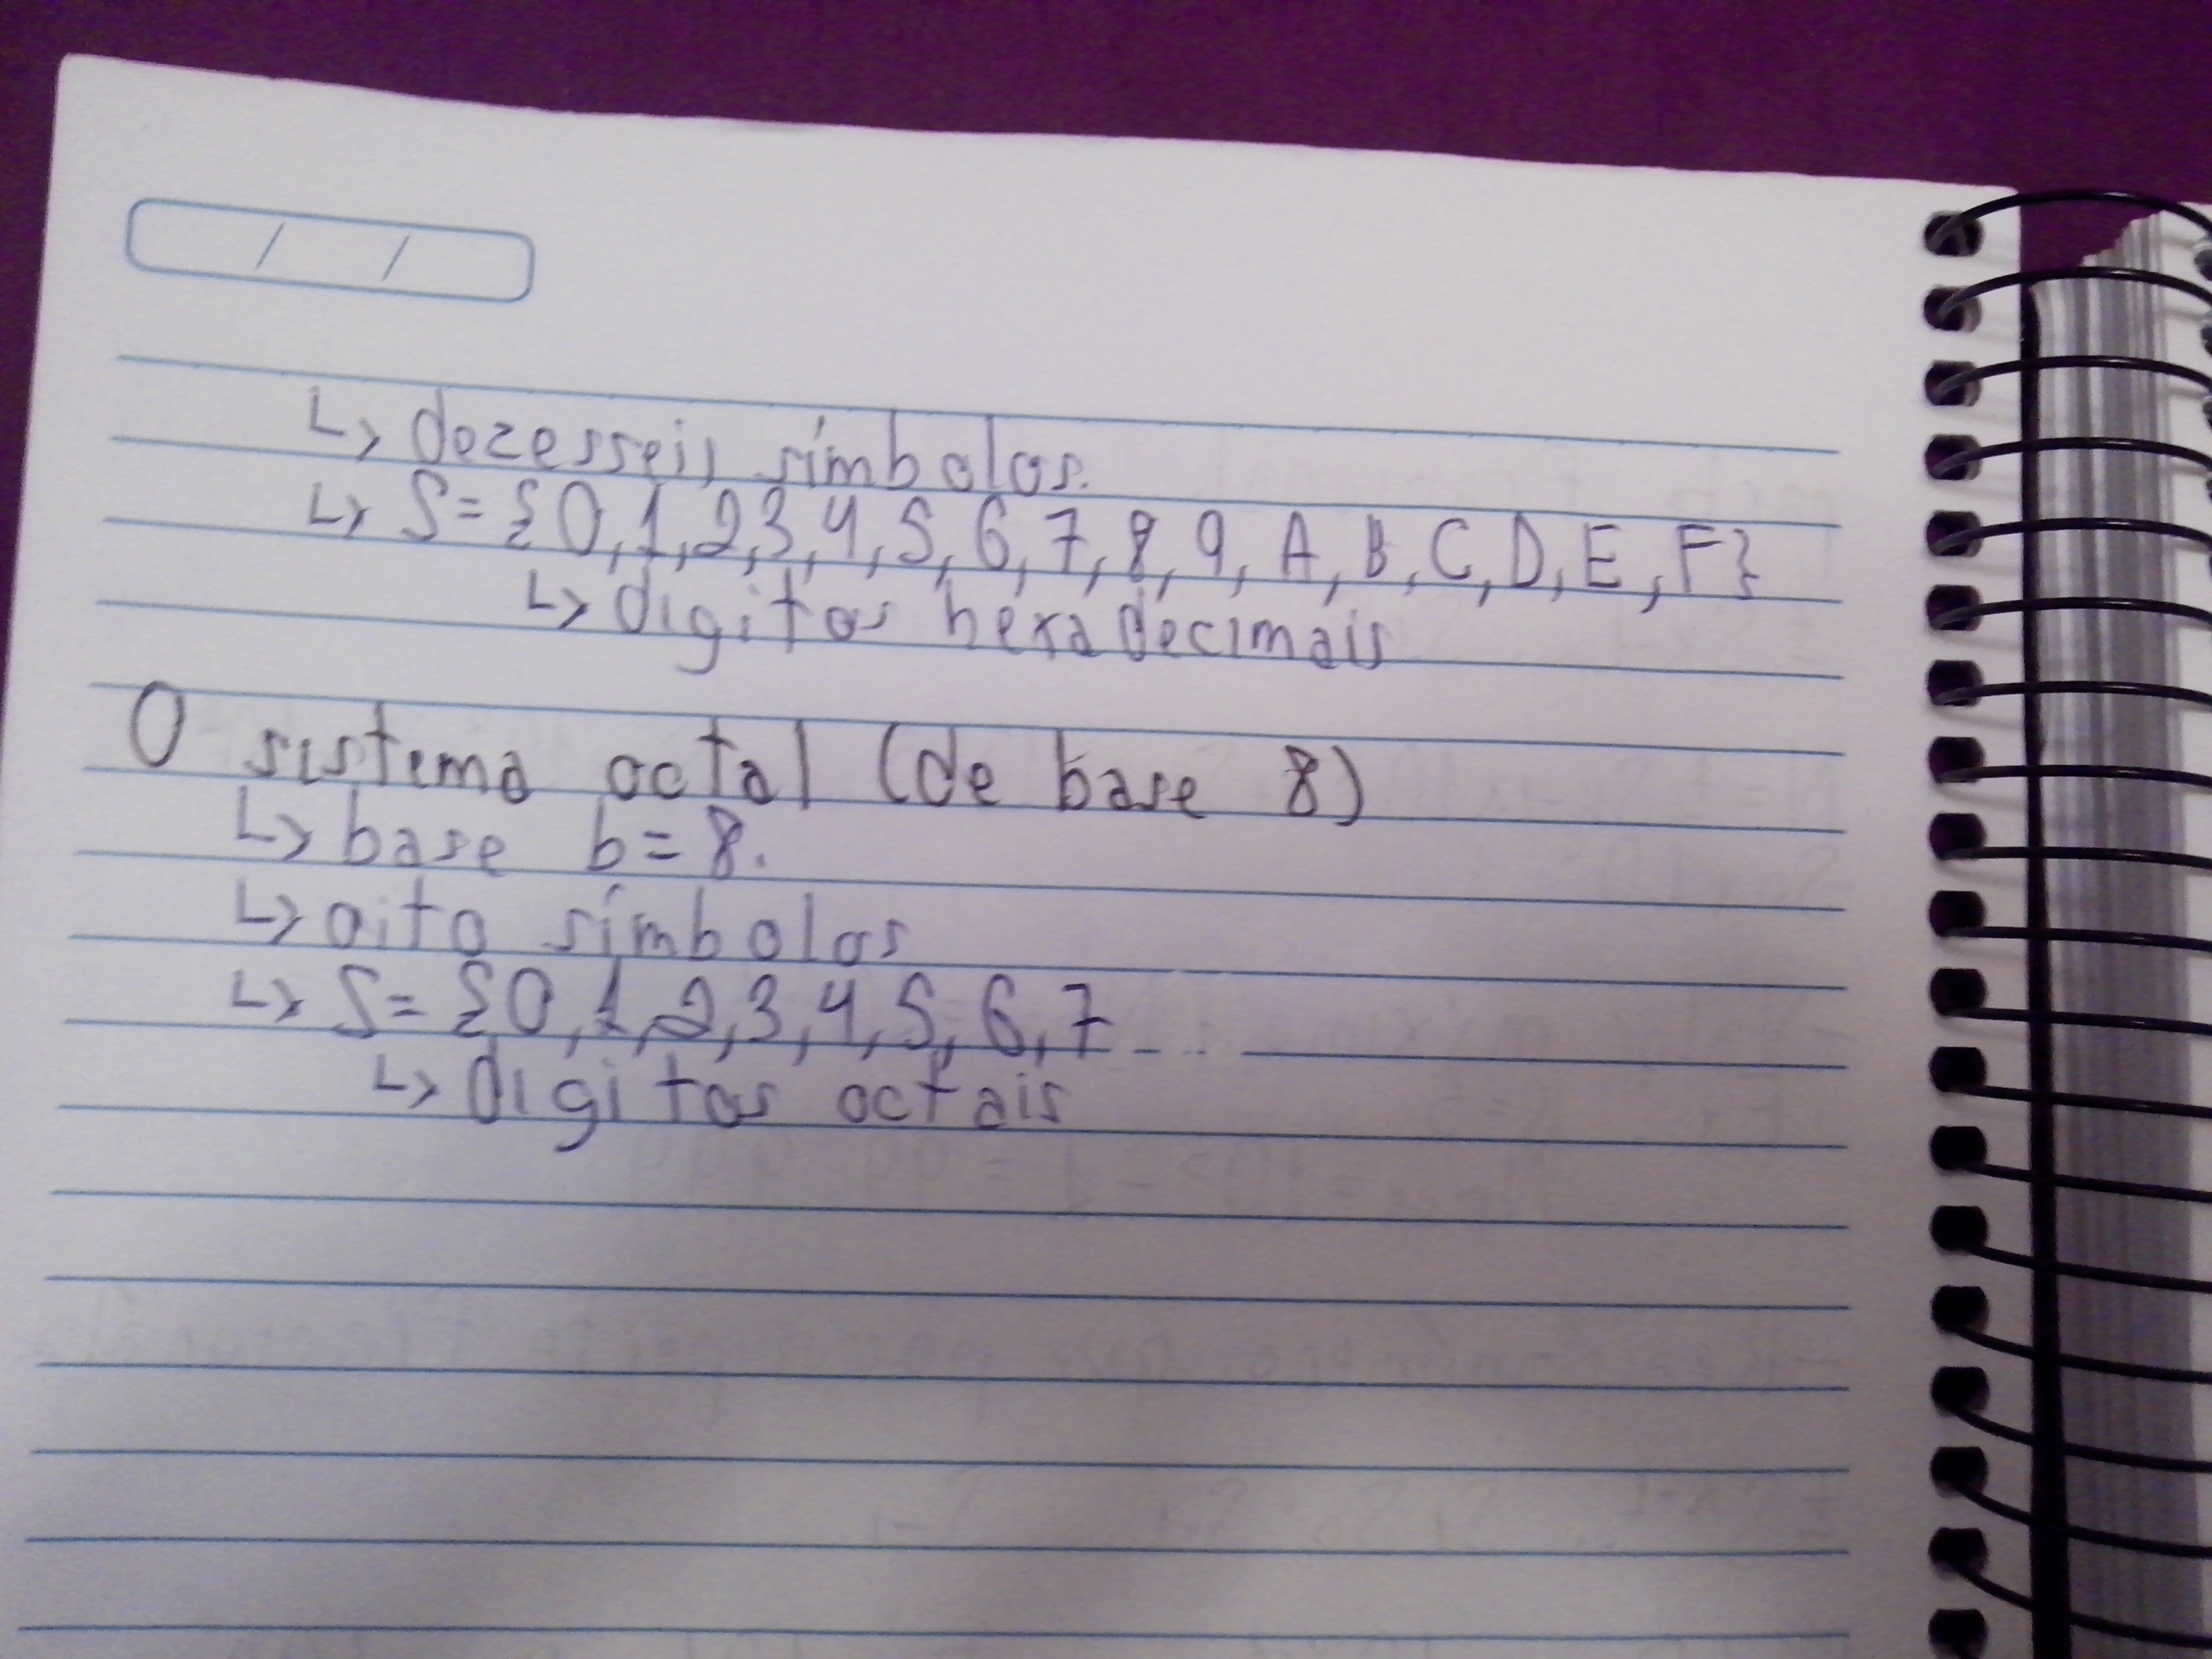 / /
↳ dezesseis símbolos.
↳ S={0,1,2,3,4,5,6,7,8,9,A,B,C,D,E,F}
↳ digitos hexadecimais
O sistema octal (de base 8)
↳ base b=8.
↳ oito símbolos
↳ S={0,1,2,3,4,5,6,7
↳ digitos octais